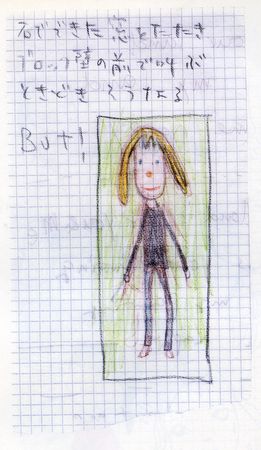 石でできた窓をたたき
ブロック塀の前で叫ぶ
ときどき そうする
But!